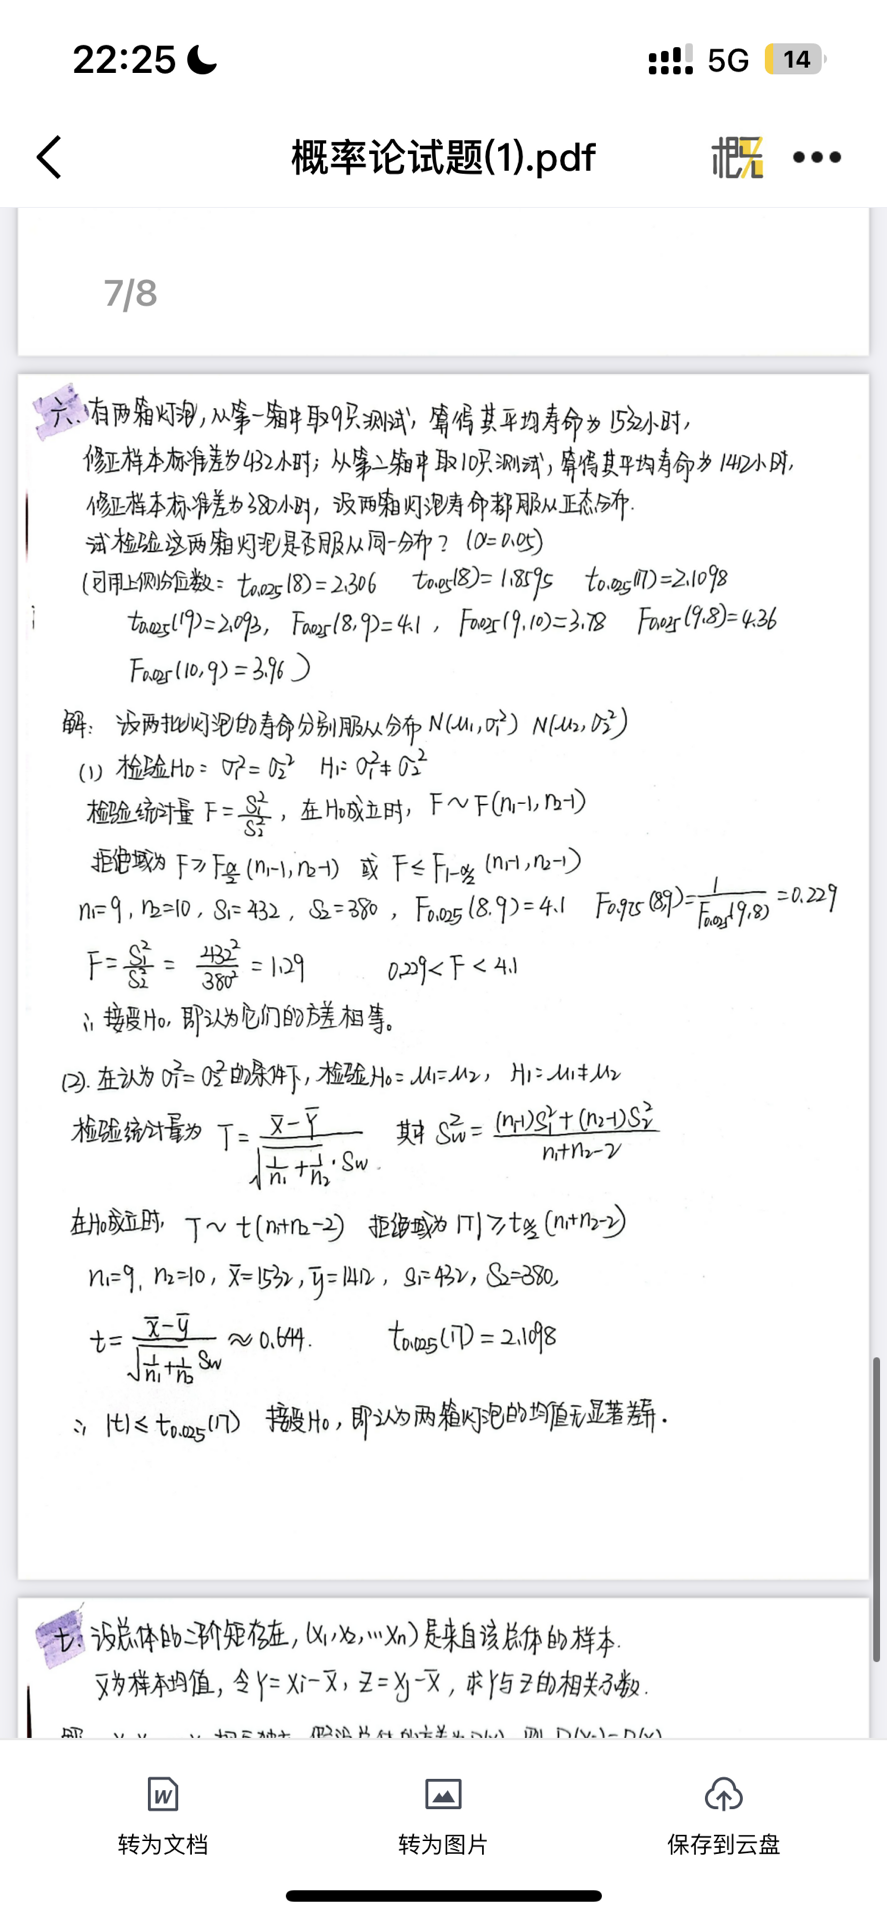 22:25
5G
14
概率论试题(1).pdf
7/8
六. 有两箱灯泡,从第一箱中取9只测试,算得其平均寿命为1532小时,
修正样本标准差为432小时;从第二箱中取10只测试,算得其平均寿命为1412小时,
修正样本标准差为380小时,设两箱灯泡寿命都服从正态分布.
试检验这两箱灯泡是否服从同一分布?(α=0.05)
(可用上侧分位数: t0.025(8)=2.306 t0.05(8)=1.8595 t0.025(17)=2.1098
t0.025(19)=2.093, F0.025(8,9)=4.1, F0.025(9,10)=3.78 F0.025(9.8)=4.36
F0.025(10,9)=3.96)
解: 设两批灯泡的寿命分别服从分布N(μ1,σ1²) N(μ2,σ2²)
(1) 检验H0: σ1²=σ2² H1: σ1²≠σ2²
检验统计量 F=S1²/S2², 在H0成立时, F~F(n1-1,n2-1)
拒绝域为 F≥Fα/2(n1-1,n2-1) 或 F≤F1-α/2(n1-1,n2-1)
n1=9, n2=10, S1=432, S2=380, F0.025(8.9)=4.1 F0.975(8,9)=1/F0.025(9,8)=0.229
F=S1²/S2²=432²/380²=1.29 0.229<F<4.1
∴ 接受H0, 即认为它们的方差相等。
(2). 在认为σ1²=σ2²的条件下, 检验H0: μ1=μ2, H1: μ1≠μ2
检验统计量为 T=(X̄-Ȳ)/(√(1/n1+1/n2)·Sw). 其中 Sw²=((n1-1)S1²+(n2-1)S2²)/(n1+n2-2)
在H0成立时, T~t(n1+n2-2) 拒绝域为|T|≥tα/2(n1+n2-2)
n1=9, n2=10, x̄=1532, ȳ=1412, S1=432, S2=380,
t=(x̄-ȳ)/(√(1/n1+1/n2)Sw)≈0.644. t0.025(17)=2.1098
∴ |t|≤t0.025(17) 接受H0, 即认为两箱灯泡的均值无显著差异.
七. 设总体的二阶矩存在, (X1,X2,…Xn)是来自该总体的样本.
X̄为样本均值, 令Y=Xi-X̄, Z=Xj-X̄, 求Y与Z的相关系数.
转为文档
转为图片
保存到云盘